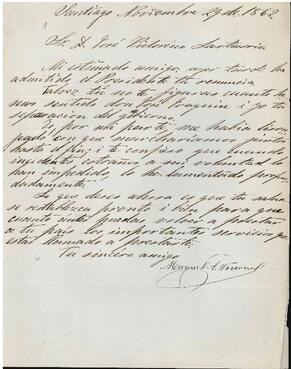 Santiago Noviembre 29 de 186
Sr. D. José Victorino Lastarria
Mi estimado amigo: ayer tarde ha
admitido el Presidente tu renuncia
Talvez tú no te figuras cuanto he
mos sentido don Joaquin i yo tu
separacion del gobierno.
Yo por mi parte, me habia lison
jeado con que marchariamos juntos
hasta el fin; i te confieso que cuando
incidentes estraños a mi voluntad lo
han impedido, lo he lamentado profun
damente.
Lo que deseo ahora es que tu salud
se restablezca pronto i bien para que
cuanto antes puedas volver a prestar
a tu pais los importantes servicios que
estas llamado a prestarle.
Tu sincero amigo
Manuel A. Tocornal